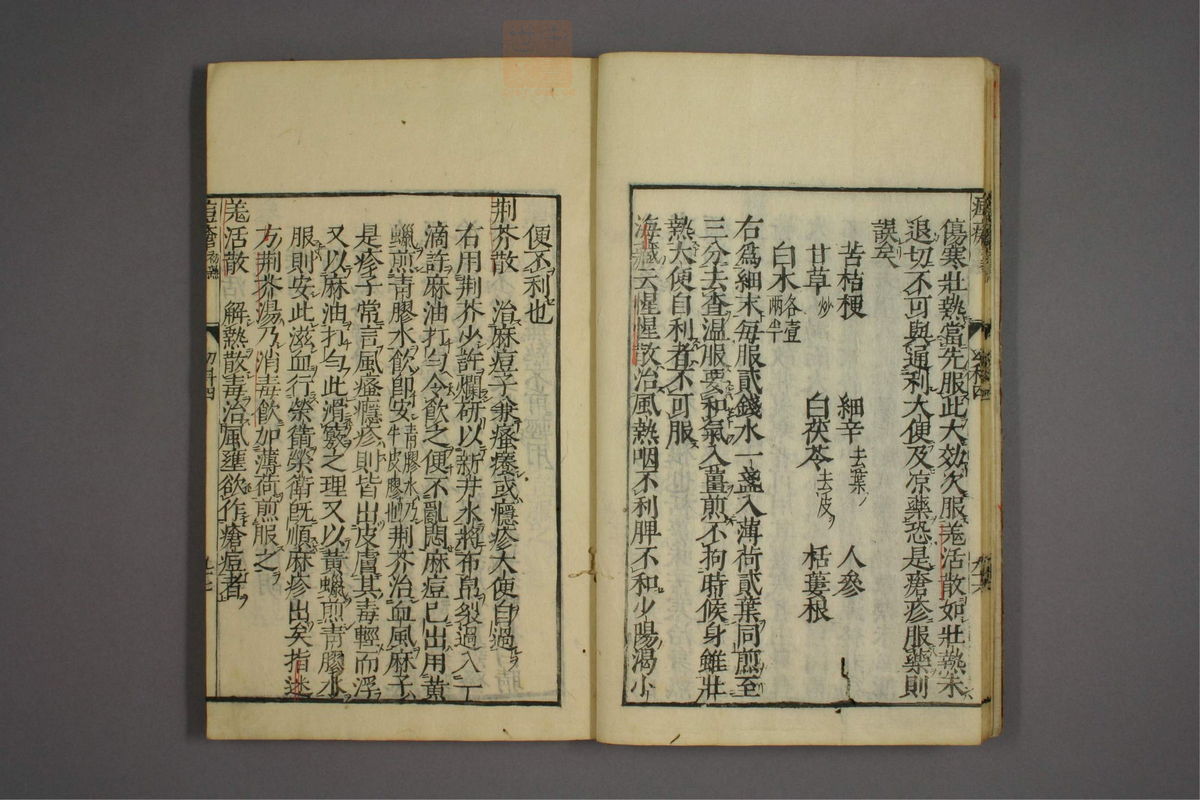 傷寒壯熱當先服此大効欠服羗活散如壯熱未
退切不可與通利大便及凉藥恐是瘡疹服藥則
誤矣
苦桔梗 細辛去葉 人參
甘草炒 白茯苓去皮 栝蔞根
白木各壹兩半
右爲細末毎服貳錢水一盞入薄荷貳葉同煎至
三分去查温服要和氣入薑煎不拘時候身雖壯
熱大便自利者不可服
海藏云惺惺散治風熱咽不利脾不和少陽渴小
便不利也
荆芥散 治麻痘子兼瘙癢或癮疹大便自過
右用荆芥少許爛研以新井水將布帛裂過入一
滴許麻油打勻令飲之便不亂悶麻痘已出用黄
蠟煎青膠水飲即安青膠水乃牛皮膠也荆芥治血風麻子
是疹子常言風瘙癮疹則皆出皮膚其毒輕而浮
又以麻油打勻此滑竅之理又以黄蠟煎青膠水
服則安此滋血行榮衛榮衛既順麻疹出矣指迷
方荆芥湯乃消毒飲加薄荷煎服之
羗活散 解熱散毒治風壅欲作瘡痘者